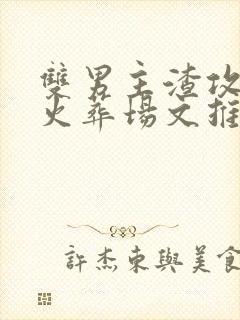 雙男主渣攻
火葬場文推
許杰東與美食